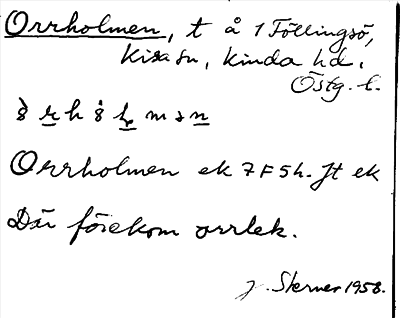 Orrholmen, t å 1 Föllingsö,
Kisa sn, Kinda hd,
Östg. l.
Orrholmen ek 7F5h. Jt ek
Där förekom orrlek.
J. Sterner 1958.